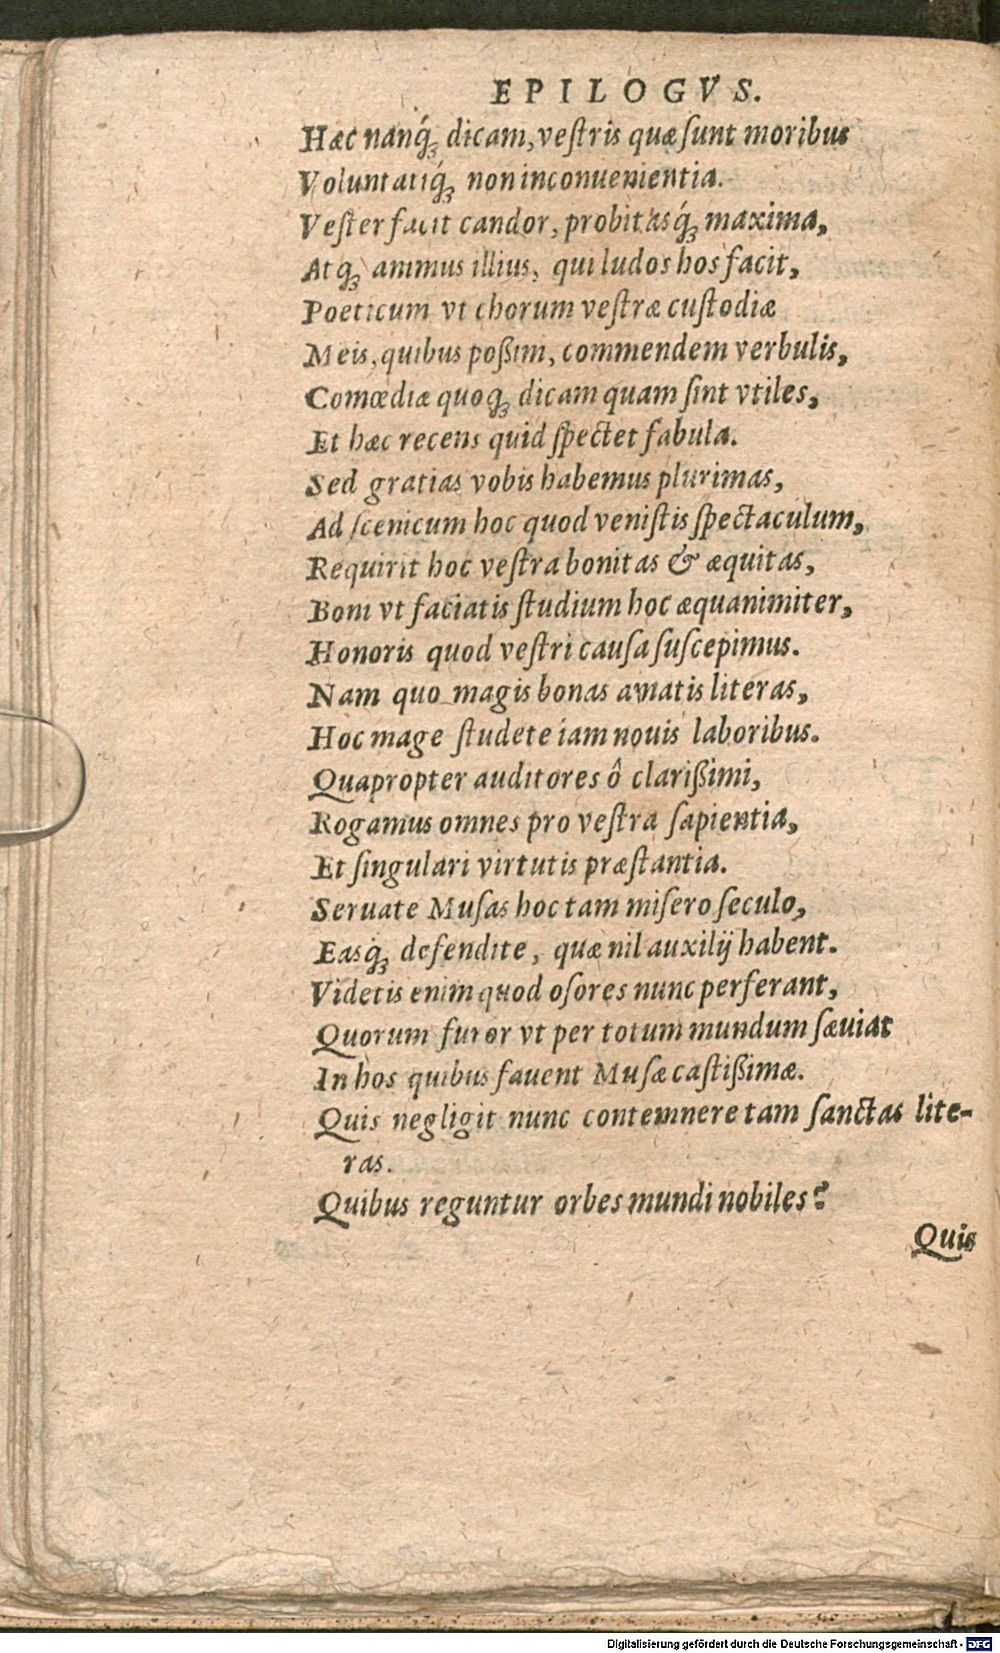 EPILOGVS.
Hæc nanq́ꝫ dicam, veſtris quæ ſunt moribus
Voluntatiq́ꝫ non inconuenientia.
Veſter facit candor, probitasq́ꝫ maxima,
Atqꝫ animus illius, qui ludos hos facit,
Poeticum vt chorum veſtræ cuſtodiæ
Meis, quibus poßim, commendem verbulis,
Comœdiæ quoqꝫ dicam quam ſint vtiles,
Et hæc recens quid ſpectet fabula.
Sed gratias vobis habemus plurimas,
Ad ſcenicum hoc quod veniſtis ſpectaculum,
Requirit hoc veſtra bonitas & æquitas,
Boni vt faciatis ſtudium hoc æquanimiter,
Honoris quod veſtri cauſa ſuſcepimus.
Nam quo magis bonas amatis literas,
Hoc mage ſtudete iam nouis laboribus.
Quapropter auditores ô clarißimi,
Rogamus omnes pro veſtra ſapientia,
Et ſingulari virtutis præſtantia.
Seruate Muſas hoc tam miſero ſeculo,
Easq́ꝫ defendite, quæ nil auxilij habent.
Videtis enim quod oſores nunc perferant,
Quorum furor vt per totum mundum ſæuiat
In hos quibus fauent Muſæ caſtißimæ.
Quis negligit nunc contemnere tam ſanctas lite-
ras.
Quibus reguntur orbes mundi nobiles?
Quis
Digitalisierung gefördert durch die Deutsche Forschungsgemeinschaft - DFG